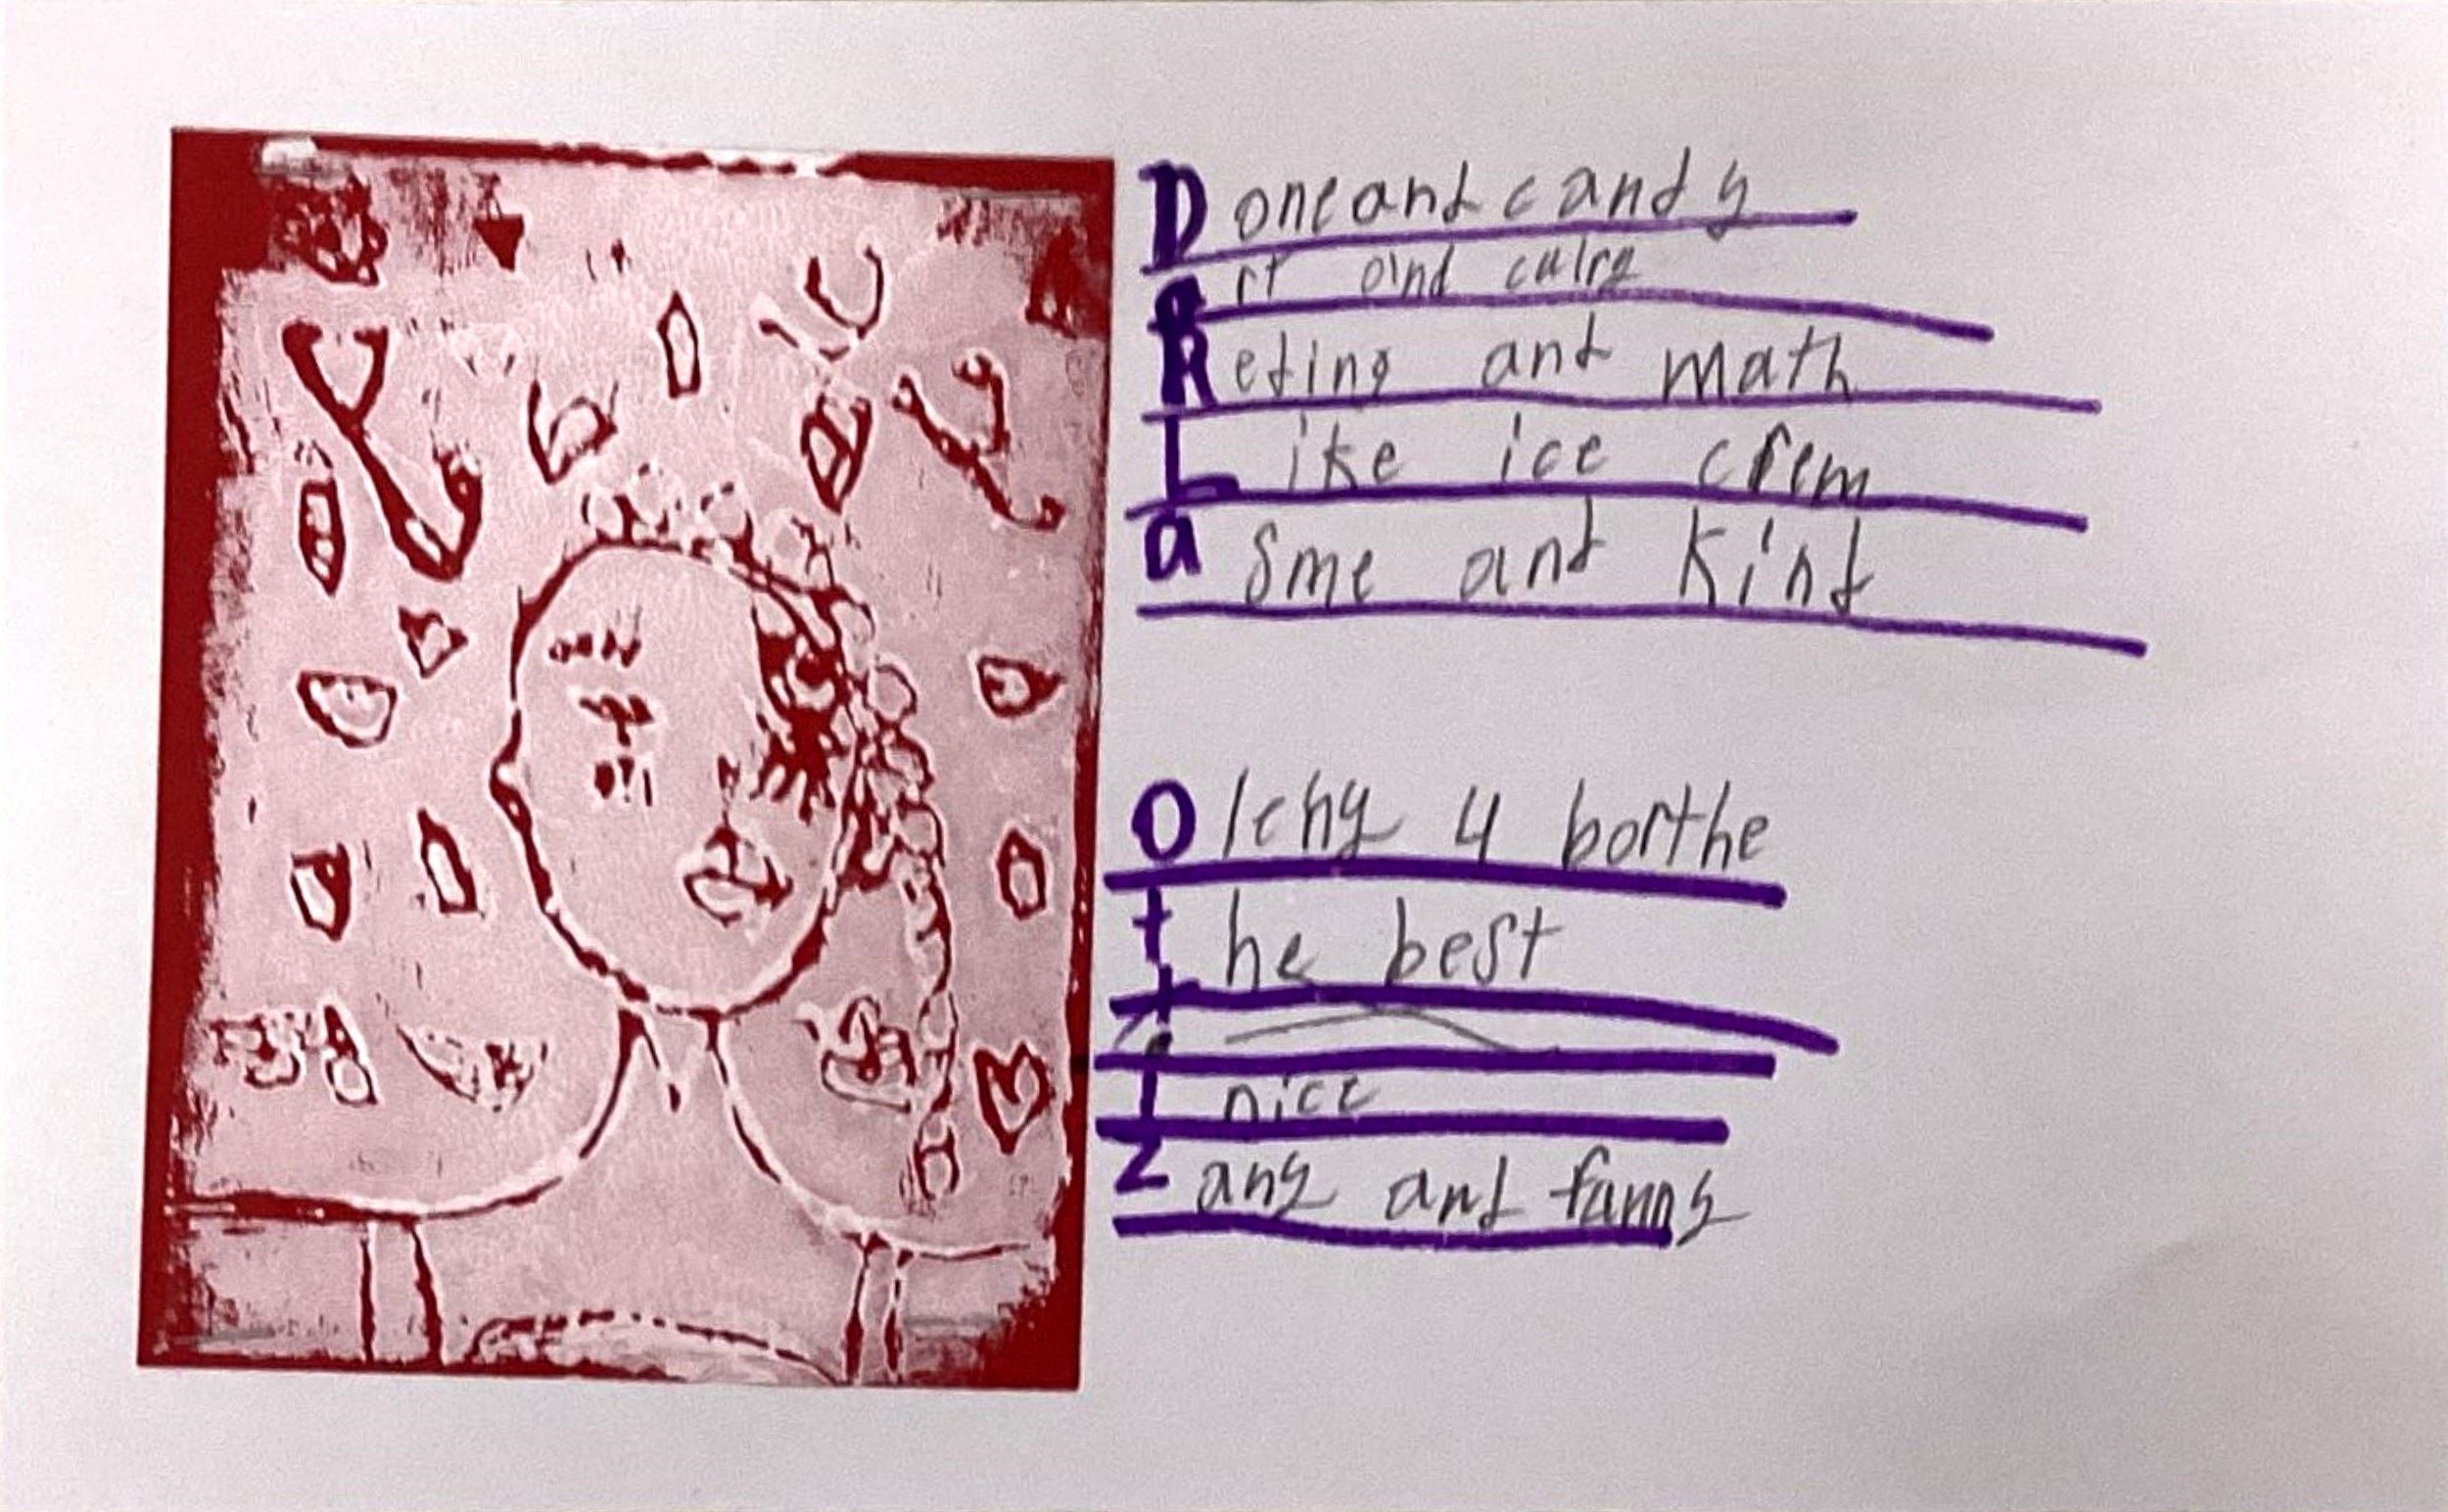 Doneand candy
art and culrg
Reding and math
Like ice crem
asme and kind
Olchy 4 borthe
the best
i nice
Zany and funny